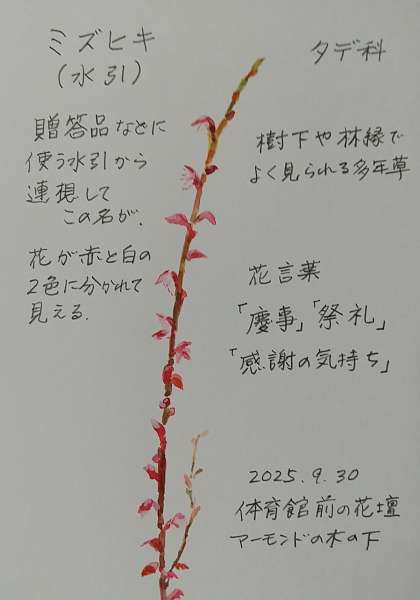 ミズヒキ
(水引)
タデ科
贈答品などに
使う水引から
連想して
この名が.
花が赤と白の
2色に分かれて
見える.
樹下や林縁で
よく見られる多年草
花言葉
「慶事」「祭礼」
「感謝の気持ち」
2025.9.30
体育館前の花壇
アーモンドの木の下